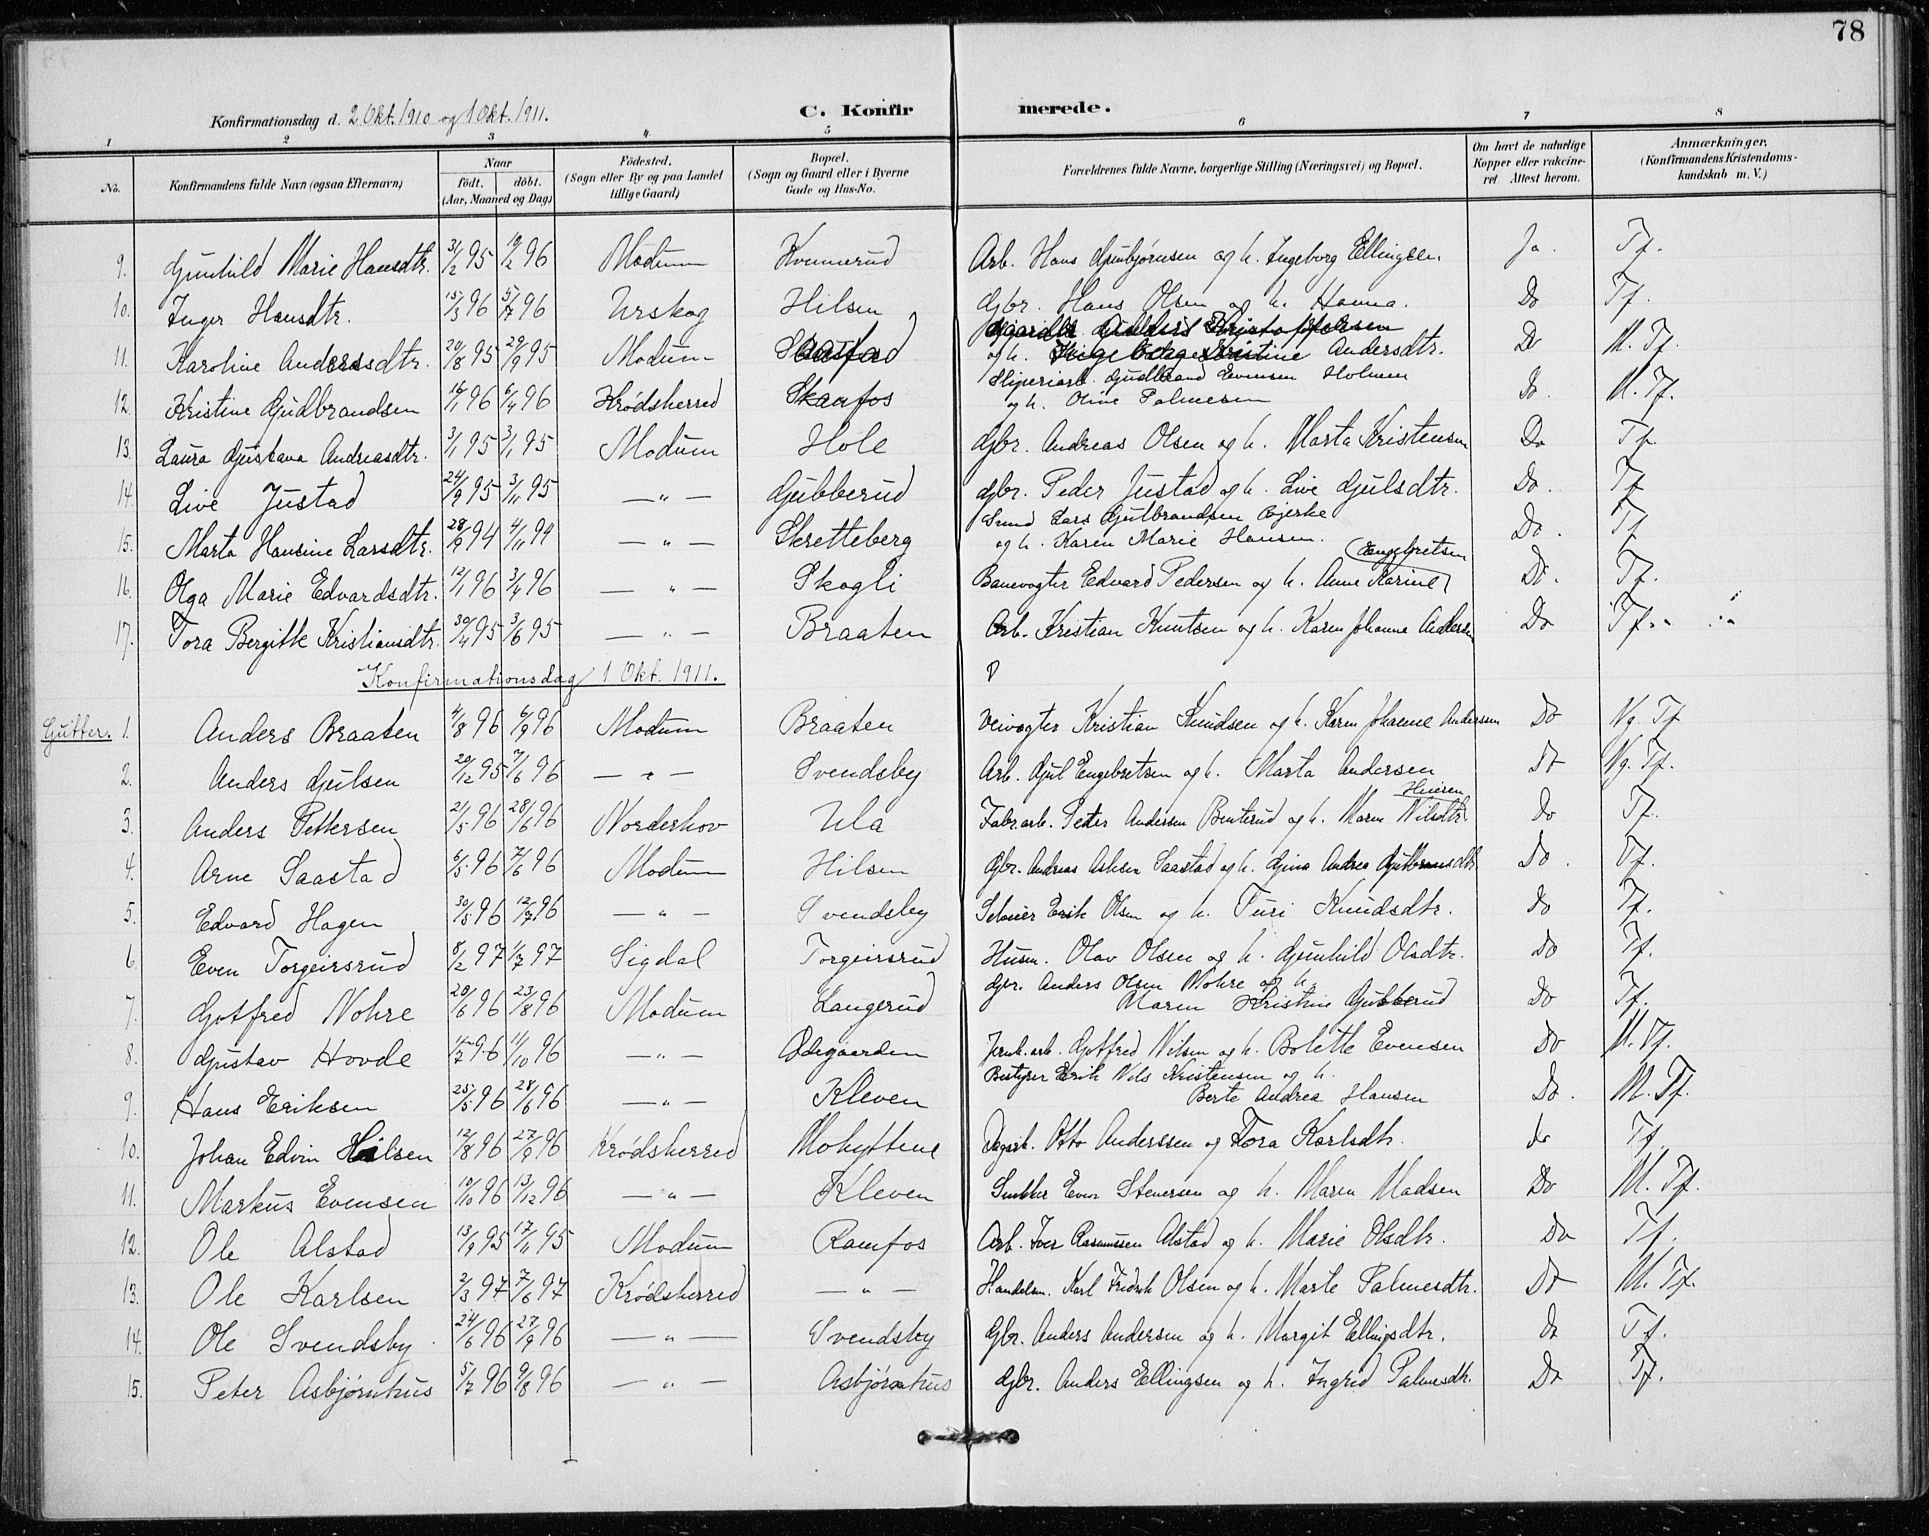 78
Konfirmationsdag d. 2 Okt. 1910 og 1 Okt. 1911. C. Konfirmerede.
1 2 3 4 5 6 7 8
No. Konfirmandens fulde Navn (ogsaa Efternavn) Naar født. døbt. (Aar, Maaned og Dag) Fødested. (Sogn eller By og paa Landet tillige Gaard) Bopæl. (Sogn og Gaard eller i Byerne Gade og Hus-No. Forældrenes fulde Navne, borgerlige Stilling (Næringsvei) og Bopæl. Om havt de naturlige Kopper eller vakcineret. Attest herom. Anmærkninger. (Konfirmandens Kristendomskundskab m. V.)
9. Gunhild Marie Hansdtr. 31/12 95 19/2 96 Modum Kvennerud Arb. Hans Gunbjørnsen og h. Ingeborg Ellingsen. Ja. Tf.
10. Inger Hansdtr. 15/3 96 5/7 96 Urskog Hilsen Gbr. Hans Olsen og h. Hanna. Do Tf.
11. Karoline Andersdtr. 20/8 95 29/9 95 Modum og h. Andersdtr. Do M. Tf.
12. Kristine Gudbrandsen 16/1 96 6/4 96 Krødsherred Skaafos Sliperiarb. Gudbrand Evensen Holmen og h. Oline Palmesen Do. M. Tf.
13. Laura Gustava Andreasdtr. 3/1 95 3/1 95 Modum Hole Gbr. Andreas Olsen og h. Marta Kristensen Do Tf.
14. Live Justad 24/9 95 3/11 95 — " — Gubberud Gbr. Peder Justad og h. Live Gulsdtr. Do. Tf
15. Marta Hansine Larsdtr. 28/9 94 4/11 94 — " — Skretteberg Lars Gutbrandsen Bjerke og h. Karen Marie Hansen. Do. Tf
16. Olga Marie Edvardsdtr. 12/1 96 3/4 96 — " — Skogli Banevogter Edvard Pedersen og h. Anne Karine (Engebretsen Do. Tf.
17. Tora Bergitte Kristiansdtr. 30/4 95 3/6 95 — " — Braaten Arb. Kristian Knutsen og h. Karen Johanne Andersen Do Tf.
Konfirmationsdag 1 Okt. 1911.
Gutter. 1. Anders Braaten 4/8 96 6/9 96 Modum Braaten Veivogter Kristian Knudsen og h. Karen Johanne Andersen Do Ng. Tf
2. Anders Gulsen 29/12 95 7/6 96 — " — Svendsby Arb. Gul Engebretsen og h. Marta Andersen Do Ng. Tf.
3. Anders Pettersen 21/5 96 28/6 96 Norderhov Ula Fabr.arb. Peder Andersen Benterud og h. Maren Nilsdtr. Do Tf.
4. Arne Saastad 6/5 96 7/6 96 Modum Hilsen Gbr. Andreas Saastad og h. Gina Andrea Gutbransdtr Do. Tf.
5. Edvard Hagen 30/5 96 12/7 96 — " — Svendsby Erik Olsen og h. Turi Knudsdtr. Do Tf.
6. Even Torgeirsrud 8/2 97 1/7 97 Sigdal Torgeirsrud Husm. Olav Olsen og h. Gunhild Olsdtr. Do Tf.
7. Gotfred Nohre 20/6 96 23/8 96 Modum Langerud Gbr. Anders Olsen Nohre og h. Maren Kristine Gubberud Do Tf.
8. Gustav Hovde 15/7 96 11/10 96 — " — Ødegaarden Jernb.arb. Gotfred Nilsen og h. Bolette Evensen Do M. Tf.
9. Hans Eriksen 25/5 96 28/6 96 — " — Kleven Bestyrer Erik Nils Kristensen og h. Berte Andrea Hansen Do. M. Tf.
10. Johan Edvin Hilsen 12/8 96 27/9 96 Krødsherred Mohyttene Dagarb. Otto Anderssen og Tora Karlsdtr. do Tf
11. Markus Evensen 10/10 96 13/12 96 — " — Kleven Snekker Even Stenersen og h. Maren Madsen Do M. Tf.
12. Ole Alstad 13/9 95 17/11 95 Modum Ramfos Arb. Iver Rasmussen Alstad og h. Marie Olsdtr. Do Tf.
13. Ole Karlsen 2/3 97 7/6 97 Krødsherred — " — Handelsm. Karl Fredrik Olsen og h. Marte Palmesdtr. Do M. Tf.
14. Ole Svendsby 24/6 96 27/9 96 — " — Svendsby Gbr. Anders Andersen og h. Margit Ellingsdtr. Do Tf.
15. Peter Asbjørnhus 5/7 96 9/8 96 — " — Asbjørnhus Gbr. Anders Ellingsen og h. Ingrid Palmesdtr. Do Tf.